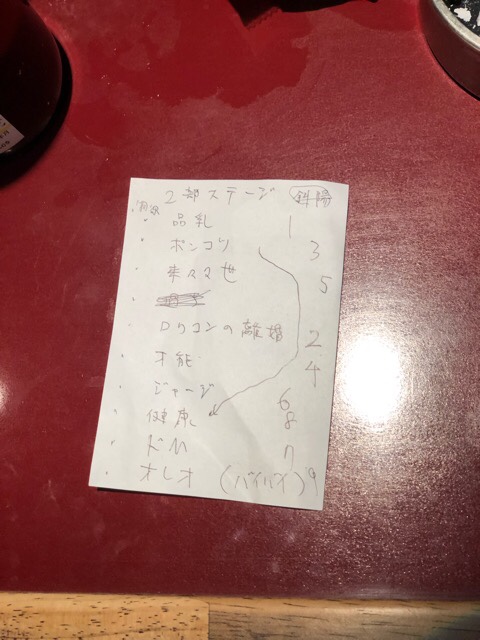 2部ステージ 斜陽
品乳 1
ポンコツ 3
来々々世 5
ロリコンの離婚 2
才能 4
ジャージ 6
健康 8
ドM 7
オレオ (バイバイ) 9